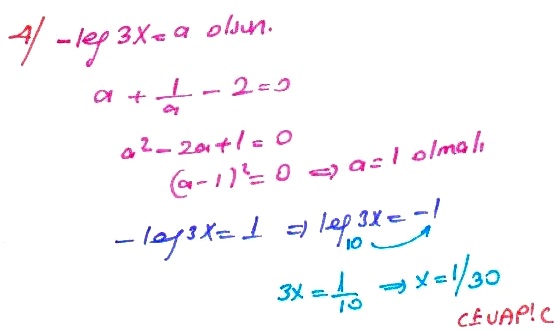 4/ -log 3x = a olsun.
a + 1/a - 2 = 0
a² - 2a + 1 = 0
(a - 1)² = 0 ⇒ a = 1 olmalı
-log 3x = 1 ⇒ log₁₀ 3x = -1
3x = 1/10 ⇒ x = 1/30
CEVAP: C